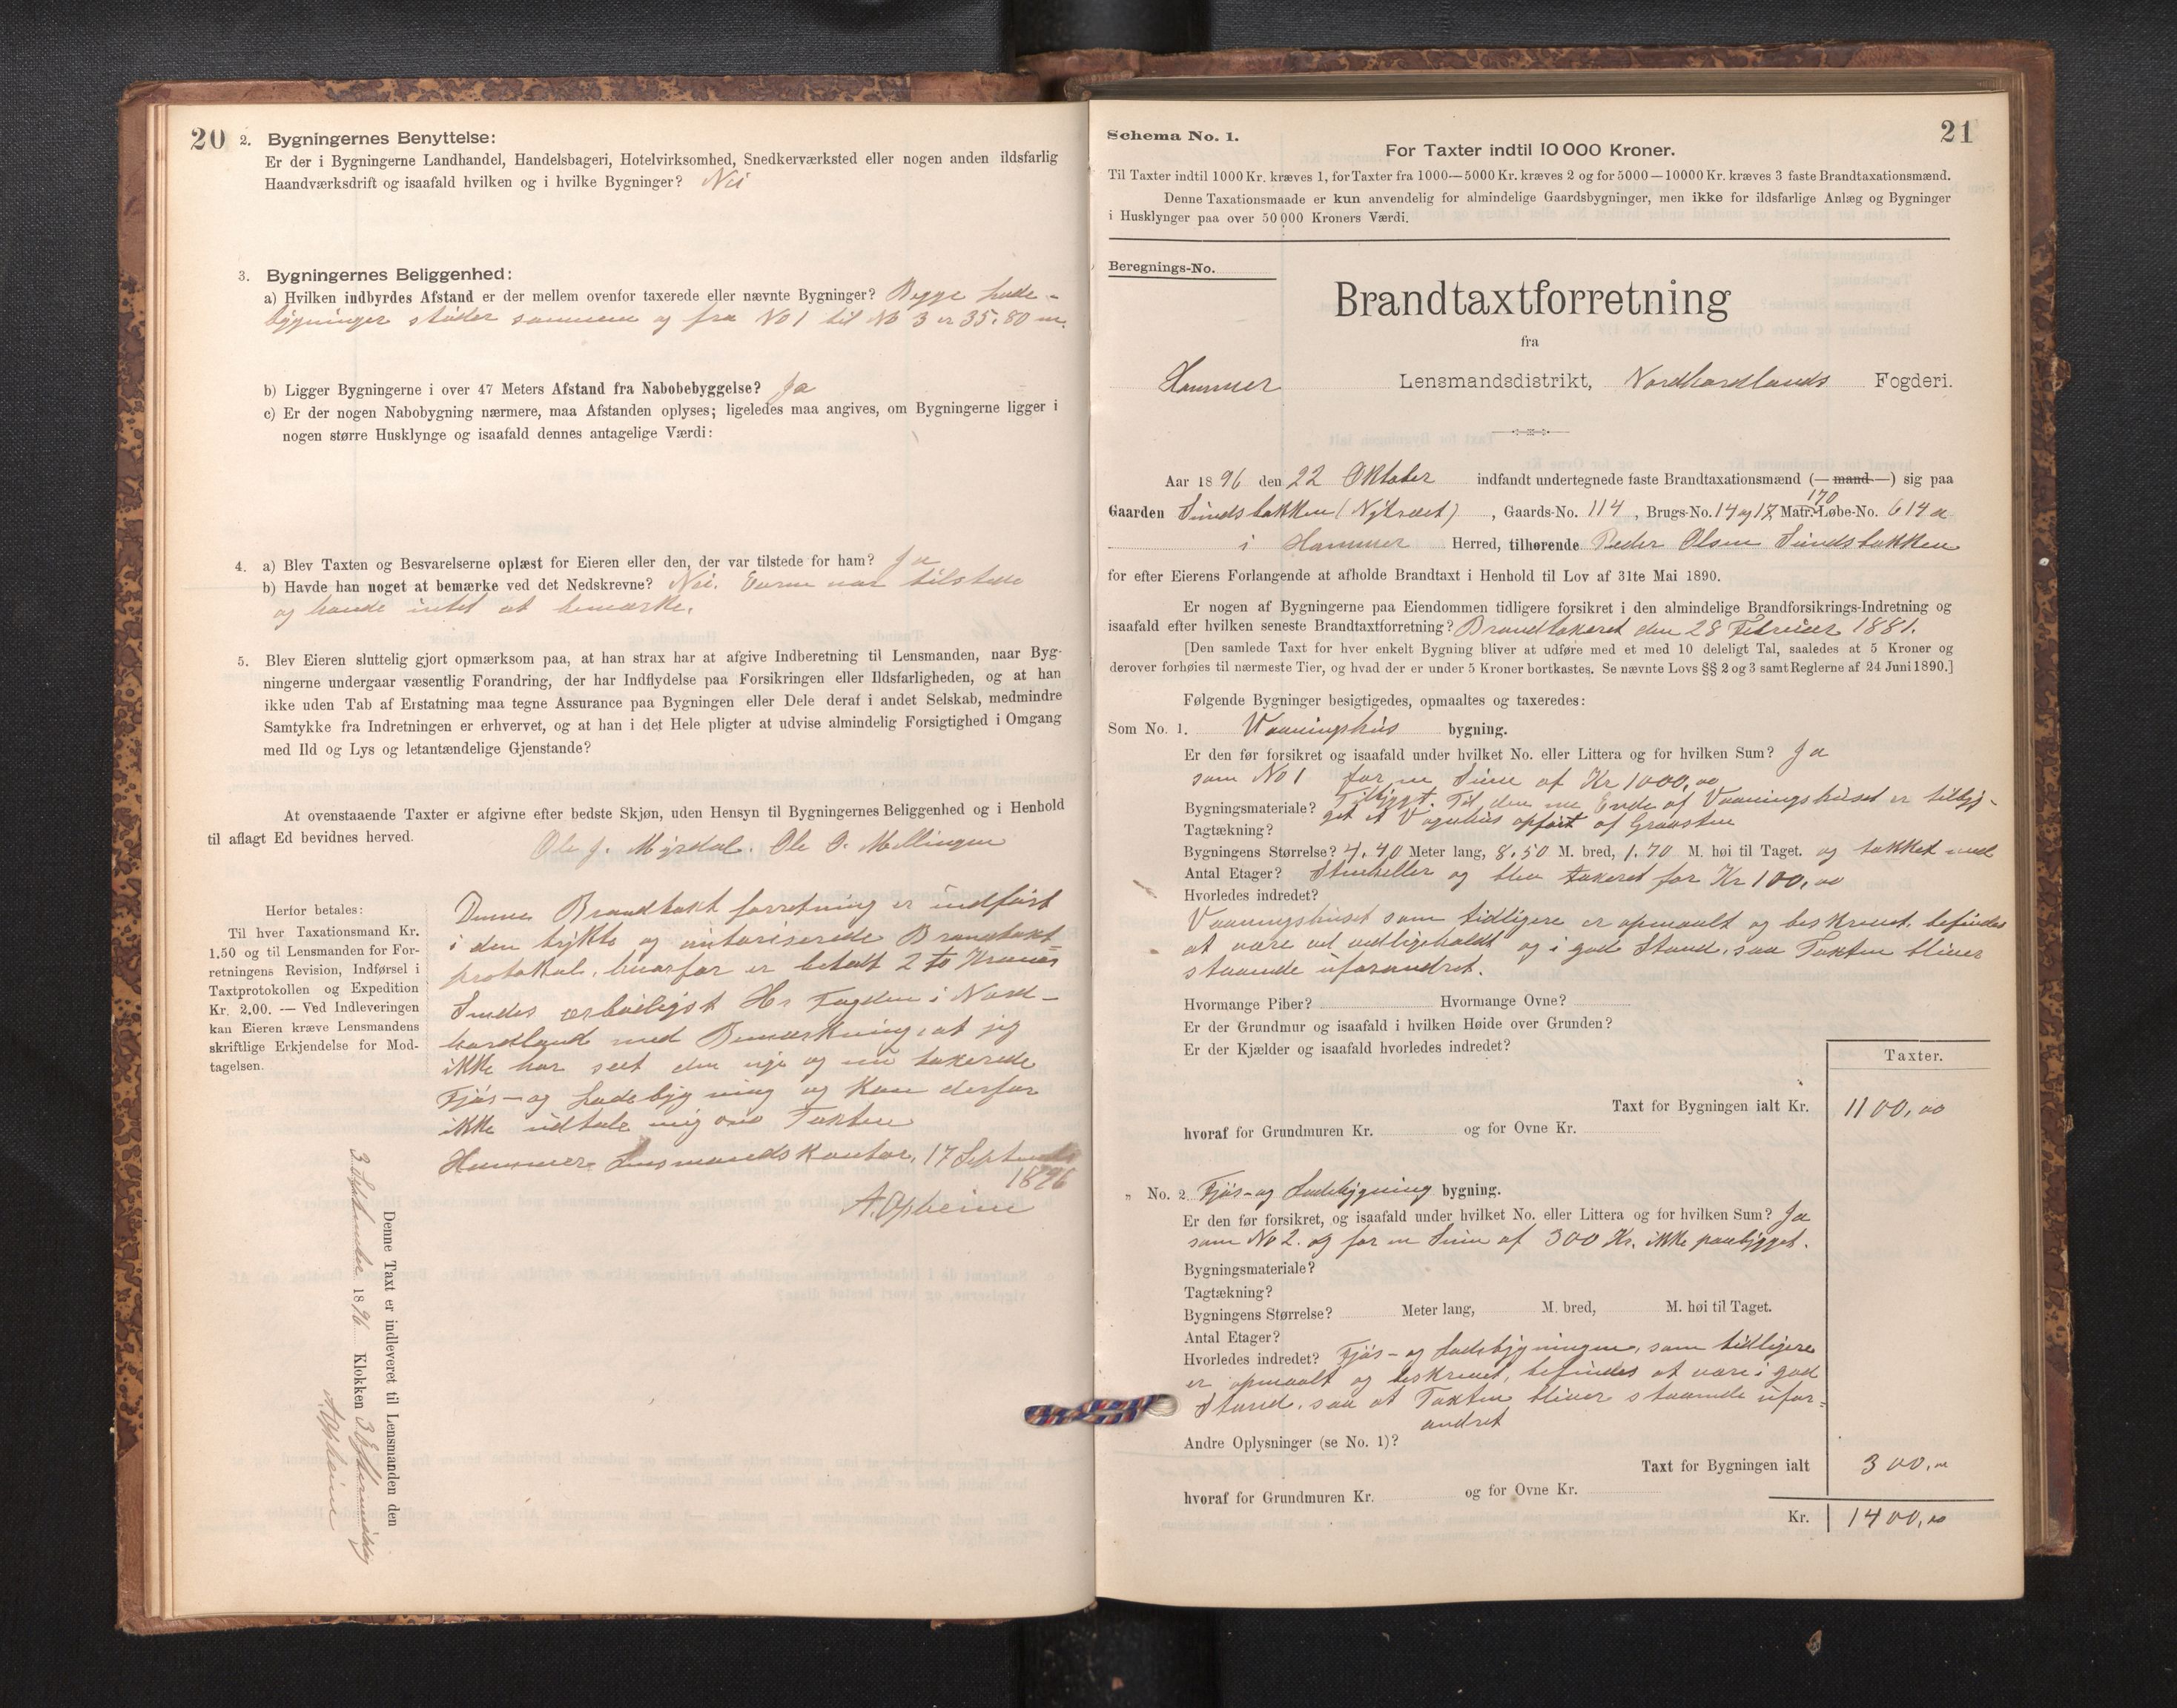 20
2. Bygningernes Benyttelse:
Er der i Bygningerne Landhandel, Handelsbageri, Hotelvirksomhed, Snedkerværksted eller nogen anden ildsfarlig
Haandværksdrift og isaafald hvilken og i hvilke Bygninger? Nei
3. Bygningernes Beliggenhed:
a) Hvilken indbyrdes Afstand er der mellem ovenfor taxerede eller nævnte Bygninger? Begge Lade-
bygninger støder sammen og fra No 1 til No 3 er 35.80 m.
b) Ligger Bygningerne i over 47 Meters Afstand fra Nabobebyggelse? Ja
c) Er der nogen Nabobygning nærmere, maa Afstanden oplyses; ligeledes maa angives, om Bygningerne ligger i
nogen større Husklynge og isaafald dennes antagelige Værdi:
4. a) Blev Taxten og Besvarelserne oplæst for Eieren eller den, der var tilstede for ham? Ja
b) Havde han noget at bemærke ved det Nedskrevne? Nei. Eieren var tilstede
og havde intet at bemærke.
5. Blev Eieren sluttelig gjort opmærksom paa, at han strax har at afgive Indberetning til Lensmanden, naar Byg-
ningerne undergaar væsentlig Forandring, der har Indflydelse paa Forsikringen eller Ildsfarligheden, og at han
ikke uden Tab af Erstatning maa tegne Assurance paa Bygningen eller Dele deraf i andet Selskab, medmindre
Samtykke fra Indretningen er erhvervet, og at han i det Hele pligter at udvise almindelig Forsigtighed i Omgang
med Ild og Lys og letantændelige Gjenstande?
At ovenstaaende Taxter er afgivne efter bedste Skjøn, uden Hensyn til Bygningernes Beliggenhed og i Henhold
til aflagt Ed bevidnes herved.
Ole J. Myrdal. Ole O. Mellingen
Herfor betales:
Til hver Taxationsmand Kr.
1.50 og til Lensmanden for For-
retningens Revision, Indførsel i
Taxtprotokollen og Expedition
Kr. 2.00. — Ved Indleveringen
kan Eieren kræve Lensmandens
skriftlige Erkjendelse for Mod-
tagelsen.
Denne Brandtaxt forretning er indført
i den trykte og autoriserede Brandtaxt=
protokol, hvorfor er betalt 2 to Kroner
Sendes ærbødigst Hr Fogden i Nord-
hordland med Bemærkning, at jeg
ikke har seet den nye og nu taxerede
Fjøs- og Ladebygning og kan derfor
ikke udtale mig om Taxten
Hammer Lensmandskontor, 17 September
1896
A. Opheim
Denne Taxt er indleveret til Lensmanden den
3 September 1896 Klokken 3 Eftermiddag
A. Opheim
21
Schema No. 1.
For Taxter indtil 10 000 Kroner.
Til Taxter indtil 1000 Kr. kræves 1, for Taxter fra 1000—5000 Kr. kræves 2 og for 5000—10000 Kr. kræves 3 faste Brandtaxationsmænd.
Denne Taxationsmaade er kun anvendelig for almindelige Gaardsbygninger, men ikke for ildsfarlige Anlæg og Bygninger
i Husklynger paa over 50 000 Kroners Værdi.
Beregnings-No.
Brandtaxtforretning
fra
Hammer Lensmandsdistrikt, Nordhordlands Fogderi.
Aar 1896 den 22 Oktober indfandt undertegnede faste Brandtaxationsmænd (—mand—) sig paa
170
Gaarden Sundstakken (Nytræet), Gaards-No. 114, Brugs-No. 14 og 17, Matr.-Løbe-No. 614 a
i Hammer Herred, tilhørende Peder Olsen Sundstakken
for efter Eierens Forlangende at afholde Brandtaxt i Henhold til Lov af 31te Mai 1890.
Er nogen af Bygningerne paa Eiendommen tidligere forsikret i den almindelige Brandforsikrings-Indretning og
isaafald efter hvilken seneste Brandtaxtforretning? Brandtaxeret den 28 Februar 1881.
[Den samlede Taxt for hver enkelt Bygning bliver at udføre med et med 10 deleligt Tal, saaledes at 5 Kroner og
derover forhøies til nærmeste Tier, og hvad der er under 5 Kroner bortkastes. Se nævnte Lovs §§ 2 og 3 samt Reglerne af 24 Juni 1890.]
Følgende Bygninger besigtigedes, opmaaltes og taxeredes:
Som No. 1. Vaaningshus bygning.
Er den før forsikret og isaafald under hvilket No. eller Littera og for hvilken Sum? Ja
som No 1 for en Sum af Kr 1000,00
Bygningsmateriale? Tilbygt. Til den ene Ende af Vaaningshuset er tilbyg-
Tagtækning? get et Vognhus opført af Graasten
Bygningens Størrelse? 4.40 Meter lang, 8.50 M. bred, 1.70 M. høi til Taget. og takket med
Antal Etager? Stenheller og blev taxeret for Kr 100,00
Hvorledes indredet?
Vaaningshuset som tidligere er opmaalt og beskrevet, befindes
at være vel vedligeholdt og i god Stand, saa Taxten bliver
staaende uforandret.
Hvormange Piber? Hvormange Ovne?
Er der Grundmur og isaafald i hvilken Høide over Grunden?
Er der Kjælder og isaafald hvorledes indredet?
Taxter.
Taxt for Bygningen ialt Kr. 1100,00
hvoraf for Grundmuren Kr. og for Ovne Kr.
„ No. 2 Fjøs- og Ladebygning bygning.
Er den før forsikret, og isaafald under hvilket No. eller Littera og for hvilken Sum? Ja
som No 2. og for en Sum af 300 Kr. ikke paabygget.
Bygningsmateriale?
Tagtækning?
Bygningens Størrelse? Meter lang, M. bred, M. høi til Taget.
Antal Etager?
Hvorledes indredet? Fjøs- og Ladebygningen, som tidligere
er opmaalt og beskrevet, befindes at være i god
Stand, saa at Taxten bliver staaende ufor=
andret
Andre Oplysninger (se No. 1)?
Taxt for Bygningen ialt 300,00
hvoraf for Grundmuren Kr. og for Ovne Kr.
Kr. 1400,00